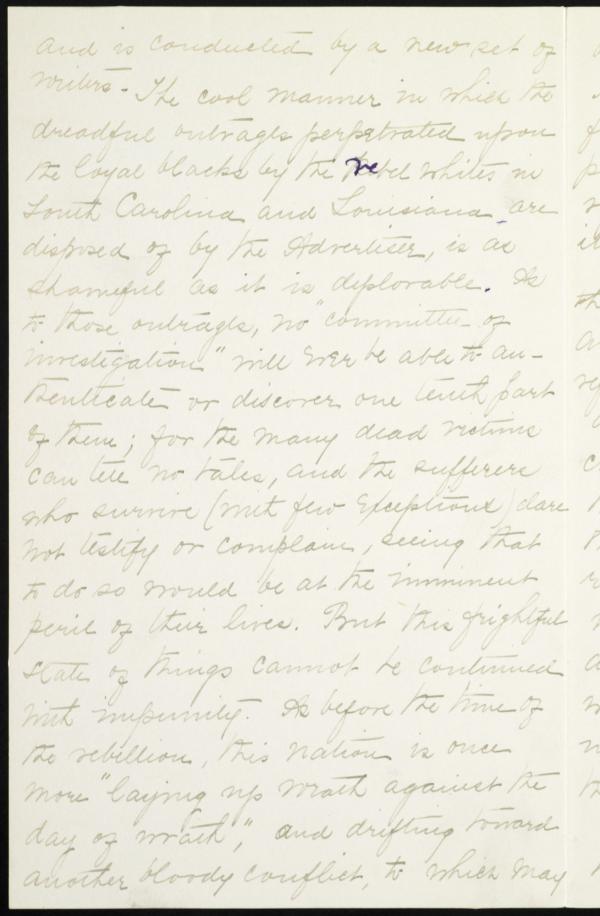 and is conducted by a new set of
writers. The cool manner in which the
dreadful outrages perpetrated upon
the loyal blacks by the rebel whites in
South Carolina and Louisiana are
disposed of by the Advertiser, is as
shameful as it is deplorable. As
to those outrages, no "committee of
investigation" will ever be able to au-
thenticate or discover one tenth part
of them; for the many dead victims
can tell no tales, and the sufferers
who survive (with few exceptions) dare
not testify or complain, seeing that
to do so would be at the imminent
peril of their lives. But this frightful
state of things cannot be continued
with impunity. As before the time of
the rebellion, this nation is once
more "laying up wrath against the
day of wrath," and drifting toward
another bloody conflict, to which may